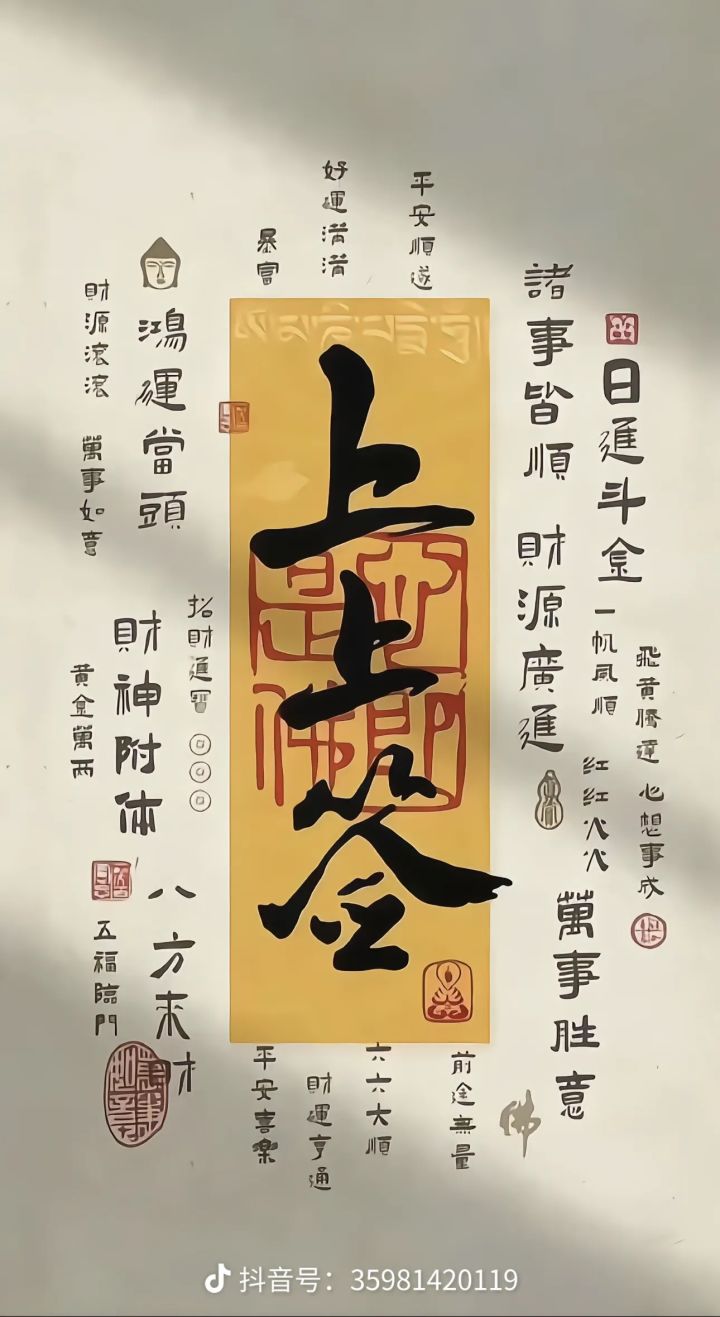 好運滿滿
平安順遂
暴富
諸事皆順
日進斗金
財源滾滾
鴻運當頭
萬事如意
上上签
財源廣進
一帆風順
飛黃騰達
心想事成
红红火火
招財進寶
財神附体
黄金萬两
萬事胜意
八方来财
五福臨門
平安喜樂
財運亨通
六六大順
前途無量
佛
抖音号：35981420119